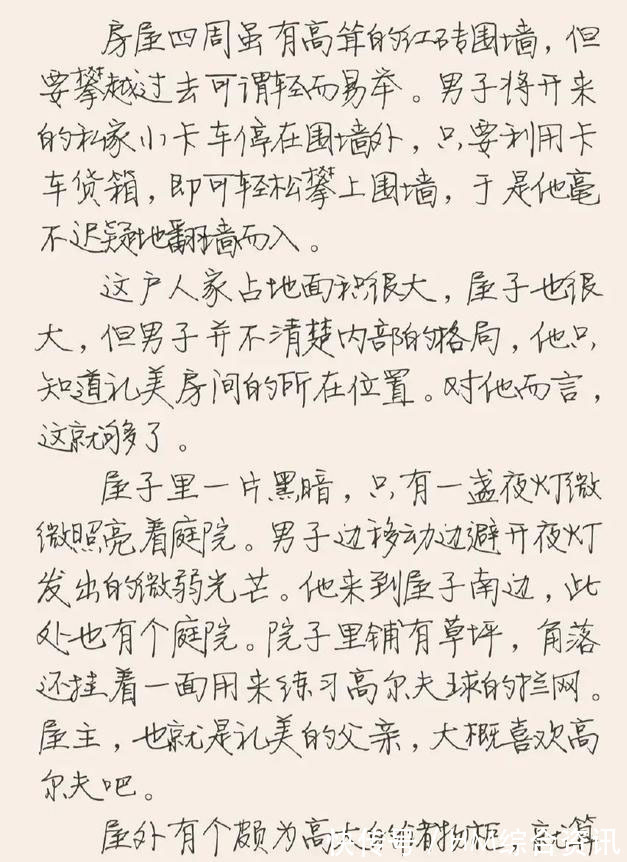 房屋四周虽有高耸的红砖围墙，但
要攀越过去可谓轻而易举。男子将开来
的私家小卡车停在围墙外，只要利用卡
车货箱，即可轻松攀上围墙，于是他毫
不迟疑地翻墙而入。
这户人家占地面积很大，屋子也很
大，但男子并不清楚内部的格局，他只
知道礼美房间的所在位置。对他而言，
这就够了。
屋子里一片黑暗，只有一盏夜灯微
微照亮着庭院。男子边移动边避开夜灯
发出的微弱光芒。他来到屋子南边，此
处也有个庭院。院子里铺有草坪，角落
还挂着一面用来练习高尔夫球的拦网。
屋主，也就是礼美的父亲，大概喜欢高
尔夫吧。
屋外有个颇为高大的储物柜，就算